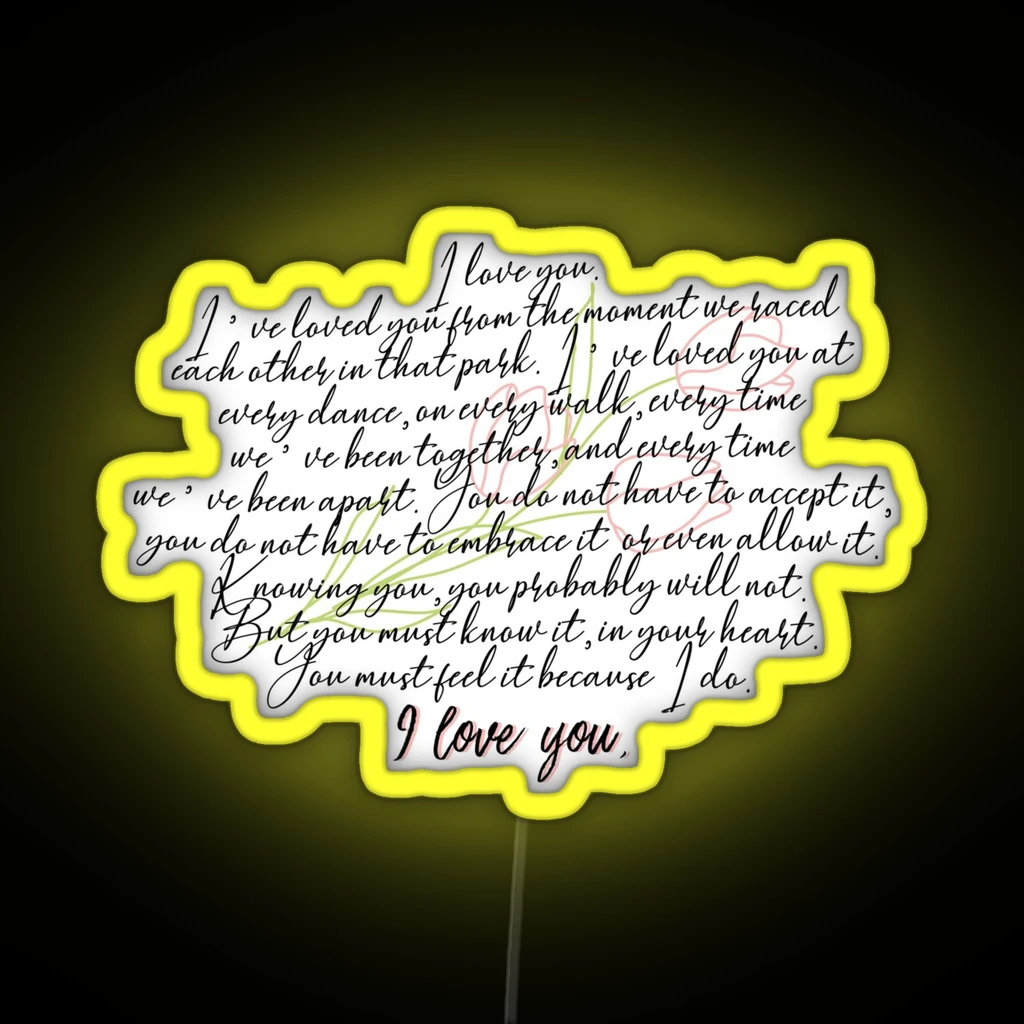 I love you.
I've loved you from the moment we raced
each other in that park. I've loved you at
every dance, on every walk, every time
we've been together, and every time
we've been apart. You do not have to accept it,
you do not have to embrace it or even allow it.
Knowing you, you probably will not.
But you must know it, in your heart.
You must feel it because I do.
I love you.